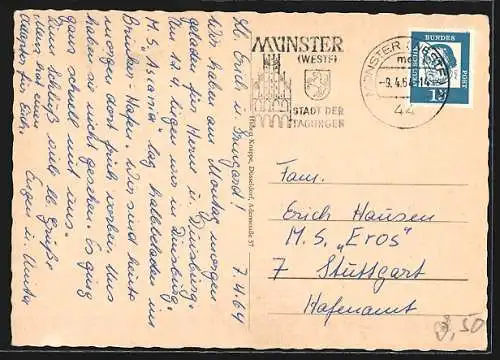 7.4.64
Lb. Erich u. Irmgard!
Wir haben am Montag morgen
geladen für Herne u. Duisburg.
Am 1.4. lagen wir in Duisburg.
M.S. "Ascania" lag Kabellader im
Brücken-Hafen. Wir sind heute
morgen dort früh vorbei. Uns
haben sie nicht gesehen. Es ging
ganz schnell mit uns.
Zum Schluß viele lb. Grüße
Eugen u. Anita
Herz hat einen
für Euch.
Hilden Knuppe, Düsseldorf, Adersstraße 57
MÜNSTER
(WESTF)
STADT DER
TAGUNGEN
MÜNSTER (WESTF)
-9.4.64-14
44
DEUTSCHE
BUNDES
POST
15
Fam.
Erich Hausen
M.S. „Eros"
7 Stuttgart
Hafenamt
3,50